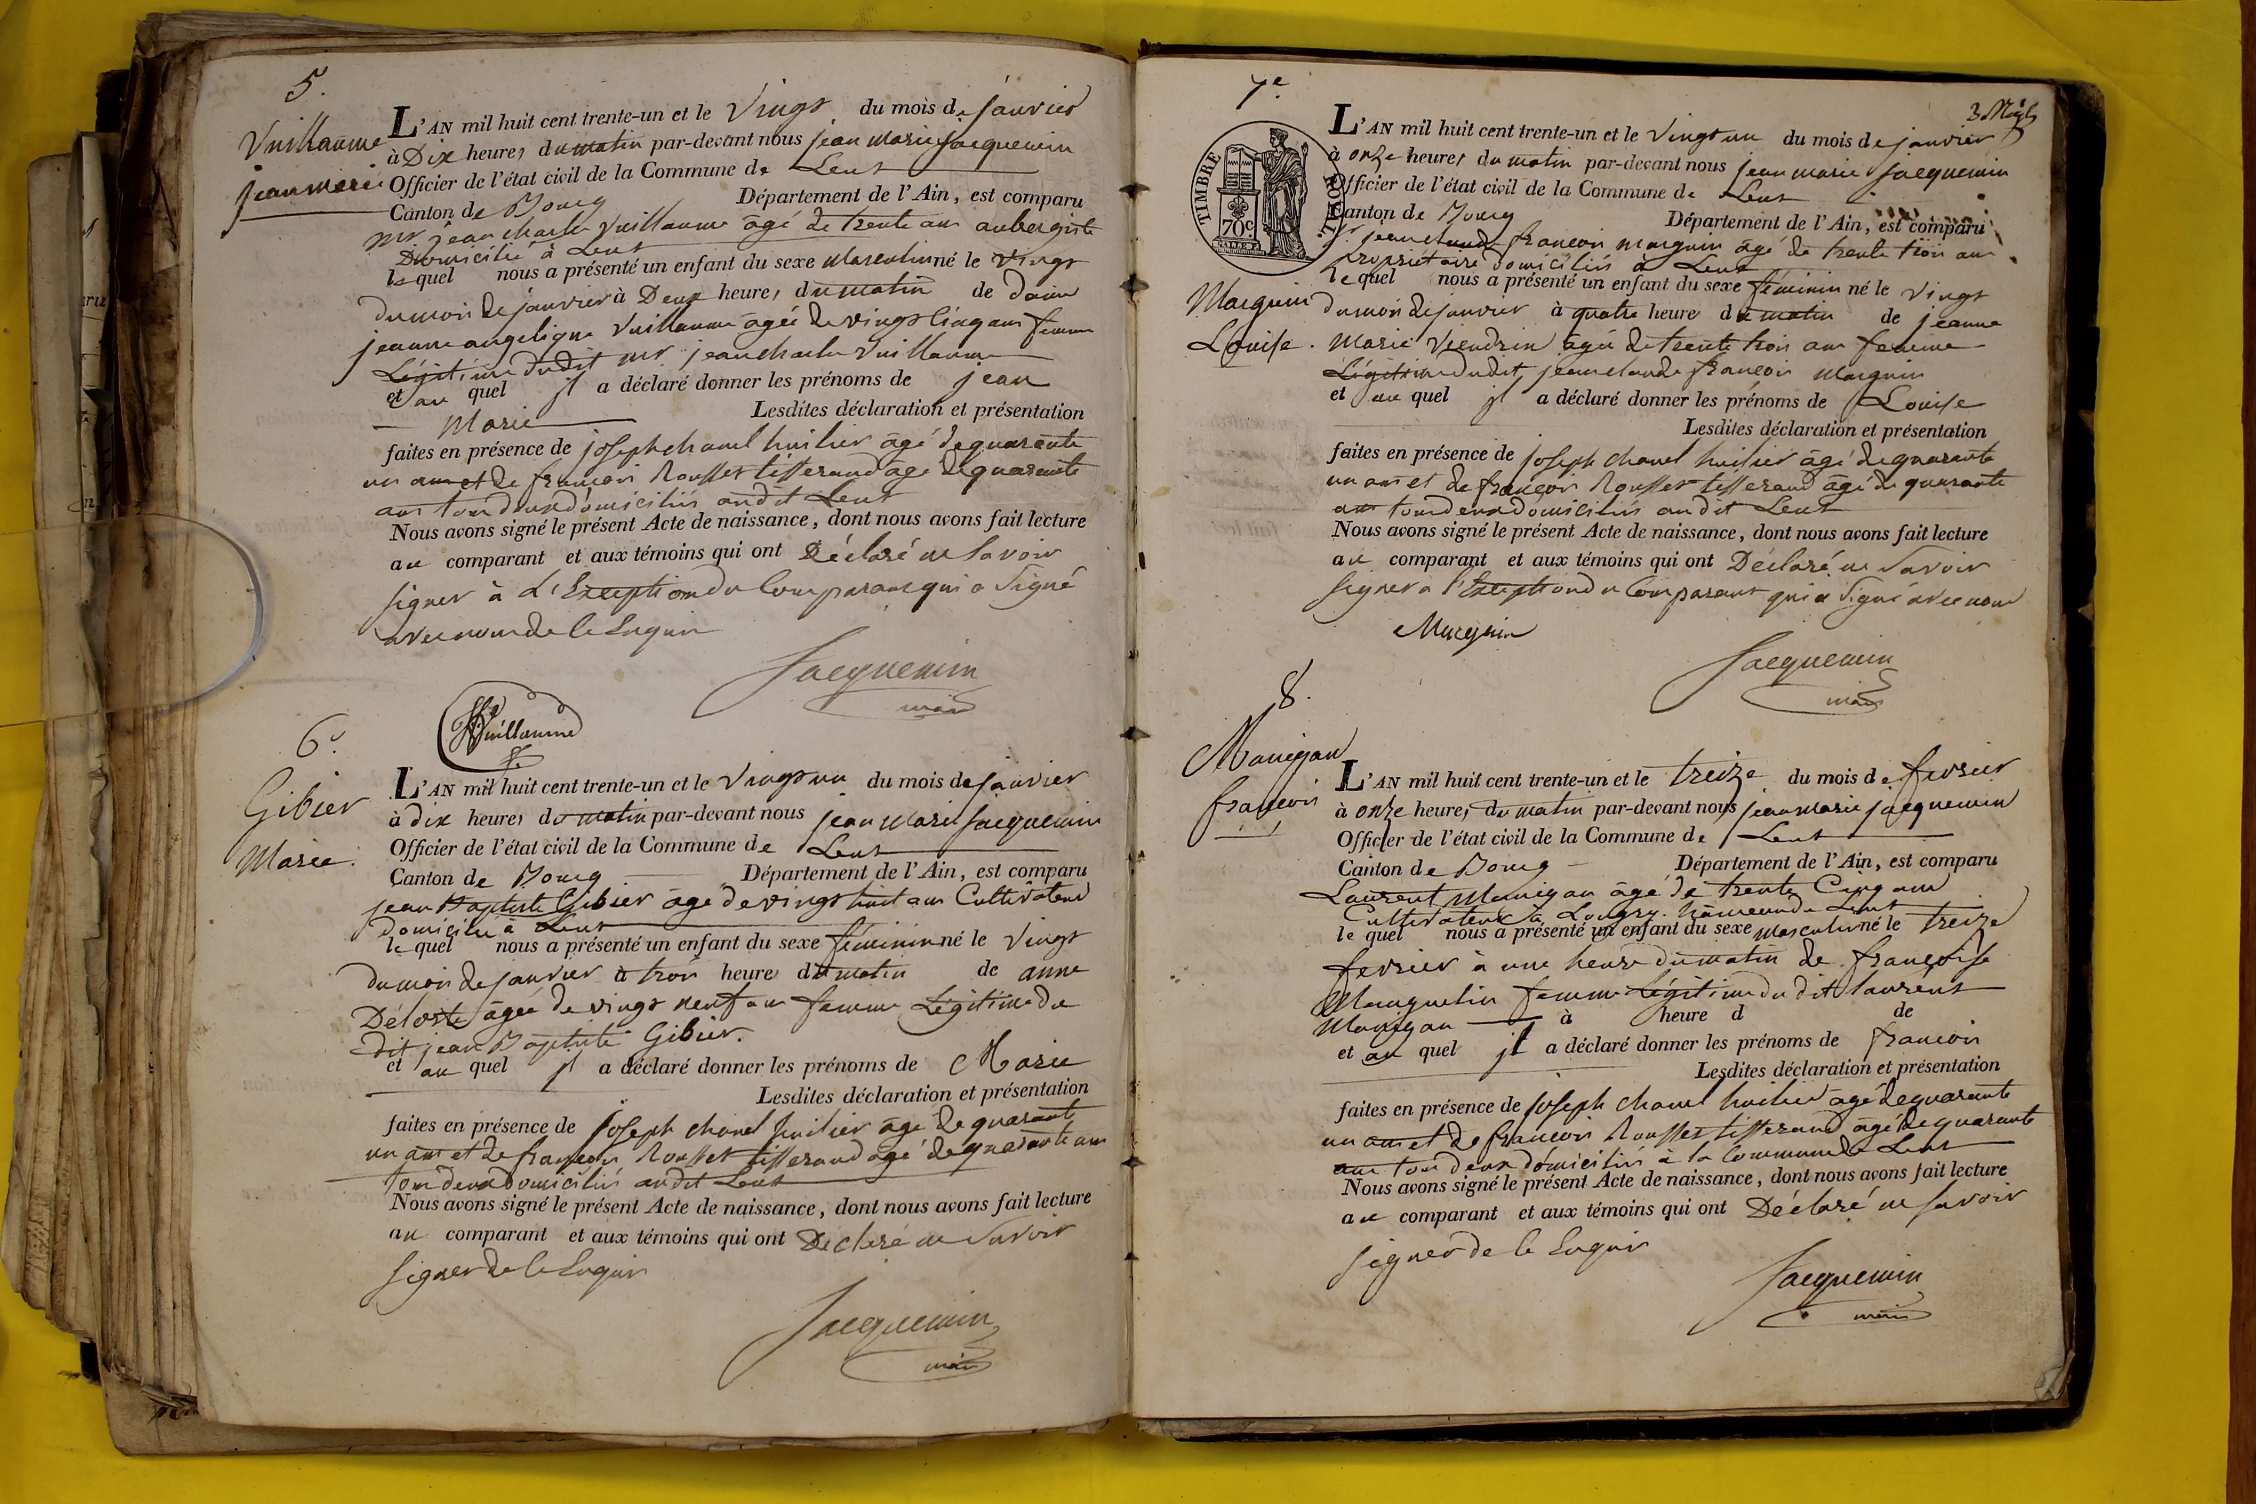 5.
Vuillaume
jean marie
L'AN mil huit cent trente-un et le Vingt du mois de janvier
à Dix heures du matin par-devant nous jean marie jacquemin
Officier de l'état civil de la Commune de Lent
Canton de Bourg Département de l'Ain, est comparu
mr jean charle Vuillaume âgé de trente ans aubergiste
Domicilié à Lent
lequel nous a présenté un enfant du sexe masculin né le vingt
du mois de janvier à Deux heures du matin de dame
jeanne angelique Vuillaume âgée de vingt cinq ans femme
Légitime dudit mr jean charle Vuillaume
et au quel il a déclaré donner les prénoms de jean
Marie Lesdites déclaration et présentation
faites en présence de joseph chanel huilier âgé de quarante
un ans et de françois Rousset tisserand âgé de quarante
ans tous deux domiciliés audit Lent
Nous avons signé le présent Acte de naissance, dont nous avons fait lecture
au comparant et aux témoins qui ont Déclaré ne Savoir
signer à L'Exception du Comparant qui a Signé
avec nous de le Enquis
Jacquemin
maire
Vuillaume
6e
Gibier
Marie.
L'AN mil huit cent trente-un et le Vingt un du mois de janvier
à dix heures du matin par-devant nous jean marie jacquemin
Officier de l'état civil de la Commune de Lent
Canton de Bourg Département de l'Ain, est comparu
jean Baptiste Gibier âgé de vingt huit ans Cultivateur
domicilié à Lent
lequel nous a présenté un enfant du sexe féminin né le vingt
du mois de janvier à trois heures du matin de anne
Déloste âgée de vingt neuf ans femme Légitime du
dit jean Baptiste Gibier.
et au quel il a déclaré donner les prénoms de Marie
Lesdites déclaration et présentation
faites en présence de joseph chanel huilier âgé de quarante
un ans et de françois Rousset tisserand âgé de quarante ans
tous deux domiciliés audit Lent
Nous avons signé le présent Acte de naissance, dont nous avons fait lecture
au comparant et aux témoins qui ont Déclaré ne Savoir
signer de le Enquis
Jacquemin
maire
7e
TIMBRE ROYAL
70c
Marguin
Louise.
L'AN mil huit cent trente-un et le vingt un du mois de janvier
à onze heures du matin par-devant nous jean marie jacquemin
Officier de l'état civil de la Commune de Lent
Canton de Bourg Département de l'Ain, est comparu
jean claude françois marguin âgé de trente trois ans
propriétaire domiciliés à Lent
lequel nous a présenté un enfant du sexe féminin né le vingt
du mois de janvier à quatre heures du matin de jeanne
marie Viendrin âgée de trente trois ans femme
Légitime dudit jean claude françois marguin
et au quel il a déclaré donner les prénoms de Louise
Lesdites déclaration et présentation
faites en présence de joseph chanel huilier âgé de quarante
un ans et de françois Rousset tisserand âgé de quarante
ans tous deux domiciliés audit Lent
Nous avons signé le présent Acte de naissance, dont nous avons fait lecture
au comparant et aux témoins qui ont Déclaré ne Savoir
signer à l'Exception du Comparant qui a Signé avec nous
Marguin
Jacquemin
maire
8.
Manigan
françois
L'AN mil huit cent trente-un et le treize du mois de fevrier
à onze heures du matin par-devant nous jean marie jacquemin
Officier de l'état civil de la Commune de Lent
Canton de Bourg Département de l'Ain, est comparu
Laurent Manigan âgé de trente Cinq ans
Cultivateur à Longry hameau de Lent
lequel nous a présenté un enfant du sexe masculin né le treize
fevrier à une heure du matin de françoise
Mauguelin femme Légitime du dit laurent
Manigan à heure d de
et au quel il a déclaré donner les prénoms de françois
Lesdites déclaration et présentation
faites en présence de joseph chanel huilier âgé de quarante
un ans et de françois Rousset tisserand âgé de quarante
ans tous deux domiciliés à la Commune de Lent
Nous avons signé le présent Acte de naissance, dont nous avons fait lecture
au comparant et aux témoins qui ont Déclaré ne Savoir
signer de le Enquis
Jacquemin
maire